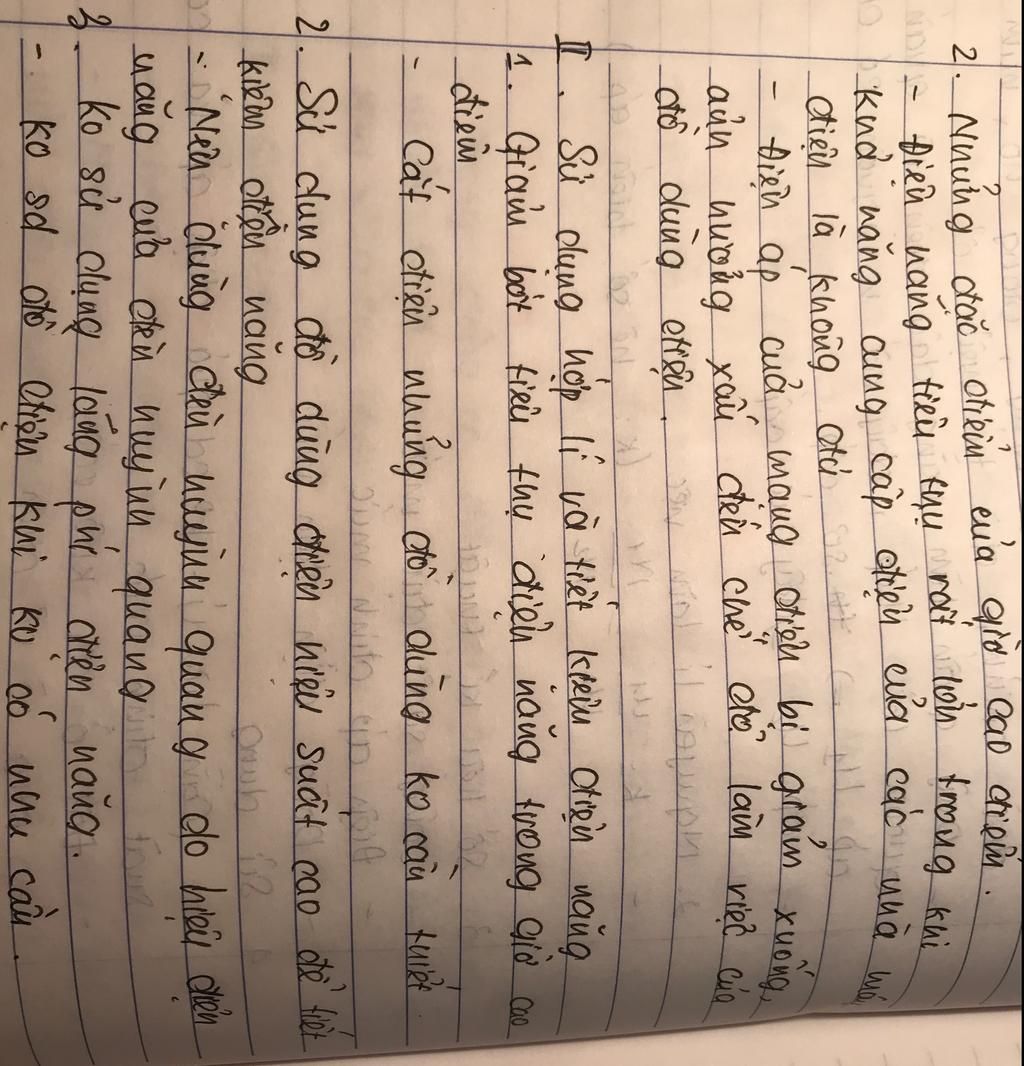 2. Những đặc điểm của giờ cao điểm.
- Điện năng tiêu thụ rất lớn trong khi
khả năng cung cấp điện của các nhà máy
điện là không đủ
- Điện áp của mạng điện bị giảm xuống,
ảnh hưởng xấu đến chế độ làm việc của
đồ dùng điện.
II. Sử dụng hợp lí và tiết kiệm điện năng
1. Giảm bớt tiêu thụ điện năng trong giờ cao
điểm
- Cắt điện những đồ dùng ko cần thiết.
2. Sử dụng đồ dùng điện hiệu suất cao để tiết
kiệm điện năng
- Nên dùng đèn huỳnh quang do hiệu điện
năng của đèn huỳnh quang
3. Ko sử dụng lãng phí điện năng.
- ko sd đồ điện khi ko có nhu cầu.